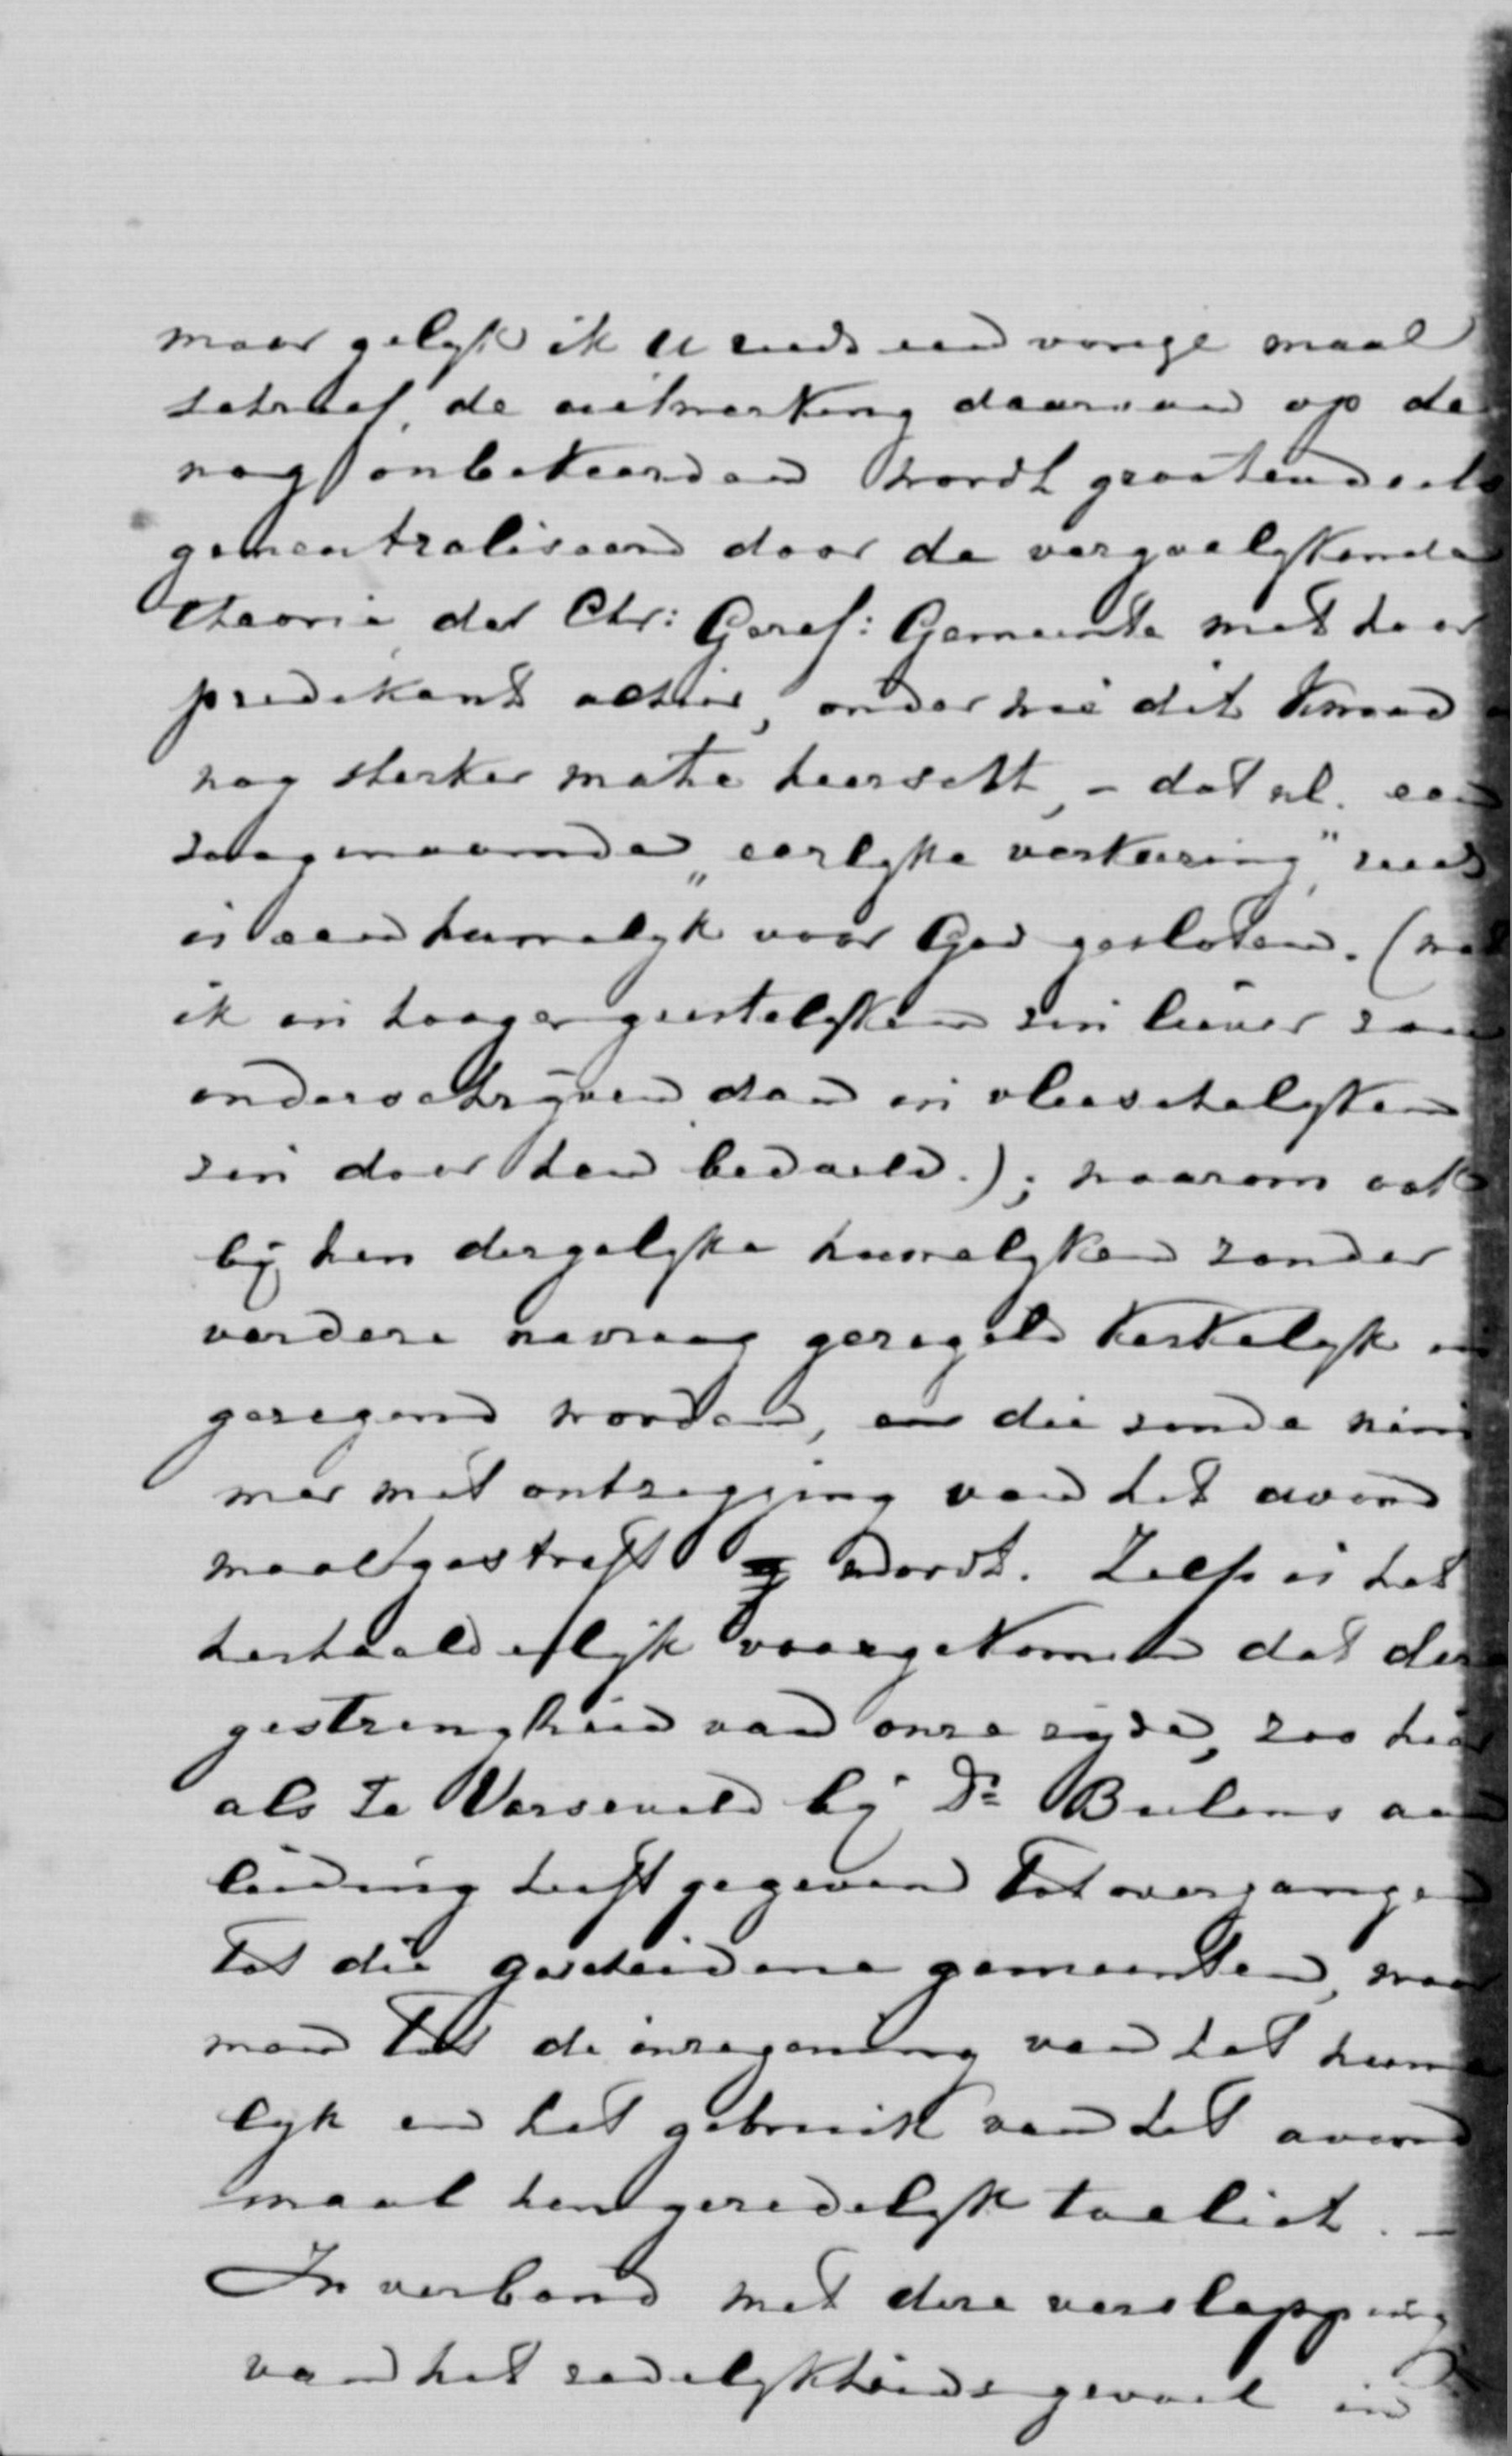 maar gelyk ik U reeds een vorige maal
schreef, de uitwerking daarvan op de
nog onbekeerden wordt grootendeels
geneutraliseerd door de vergoelykende
theorie der Chr: Geref: Gemeente met haar
predikant alhier, onder wie dit kwaad
nog sterker mate heerscht, – dat nl. een
zoogenaamde „eerlyke verkeering” reeds
is een huwelyk voor God gesloten. (wat
ik in hooger geestelyken zin liever zou
onderschrijven dan in vleeschelyken
zin door hen bedoeld.); waarom ook
bij hen dergelyke huwelyken zonder
verdere navraag geregeld kerkelyk in
gezegend worden, en die zonde nim
mer met ontzegging van het avond
maal gestraft wordt. Zelfs is het
herhaaldelijk voorgekomen dat deze
gestrengheid van onze zyde, zoo hier
als te Varseveld bij Ds Beelens aan
leiding heeft gegeven tot overgangen
tot die gescheidene gemeenten, waar
men tot de inzegening van het huwe
lyk en het gebruik van het avond
maal hen geredelyk toeliet. –
In verband met deze verslapping
van het zedelykheidsgevoel in